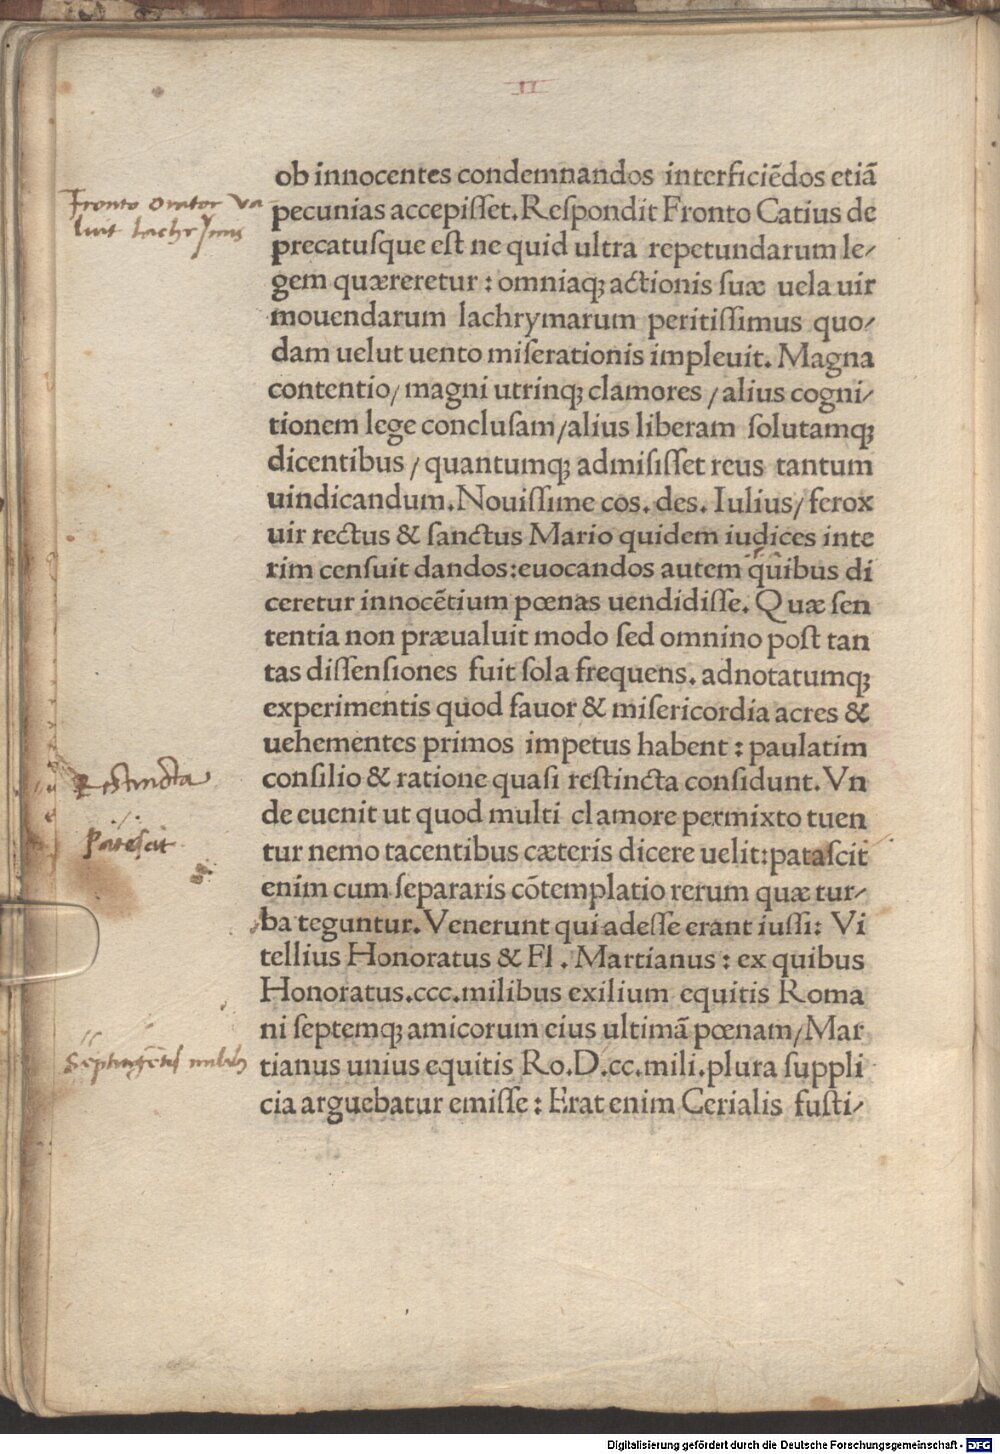 II
ob innocentes condemnandos interficiẽdos etiã
pecunias accepiſſet. Reſpondit Fronto Catius de
precatuſque eſt ne quid ultra repetundarum le⸗
gem quæreretur : omniaq; actionis ſuæ uela uir
mouendarum lachrymarum peritiſſimus quo⸗
dam uelut uento miſerationis impleuit. Magna
contentio/ magni utrinq; clamores / alius cogni⸗
tionem lege concluſam/alius liberam ſolutamq;
dicentibus / quantumq; admiſiſſet reus tantum
uindicandum. Nouiſſime cos. des. Iulius/ ferox
uir rectus & ſanctus Mario quidem iudices inte
rim cenſuit dandos:euocandos autem quibus di
ceretur innocẽtium pœnas uendidiſſe. Quæ ſen
tentia non præualuit modo ſed omnino poſt tan
tas diſſenſiones fuit ſola frequens. adnotatumq;
experimentis quod fauor & miſericordia acres &
uehementes primos impetus habent : paulatim
conſilio & ratione quaſi reſtincta conſidunt. Vn
de euenit ut quod multi clamore permixto tuen
tur nemo tacentibus cæteris dicere uelit:pataſcit
enim cum ſepararis cõtemplatio rerum quæ tur⸗
ba teguntur. Venerunt qui adeſſe erant iuſſi: Vi
tellius Honoratus & Fl . Martianus : ex quibus
Honoratus.ccc.milibus exilium equitis Roma
ni ſeptemq; amicorum eius ultimã pœnam/Mar
tianus unius equitis Ro.D.cc.mili.plura ſuppli
cia arguebatur emiſſe : Erat enim Cerialis fuſti⸗
Fronto orator va
luit lachrymis
Restincta
Patescit
Septingētis milib
Digitalisierung gefördert durch die Deutsche Forschungsgemeinschaft - DFG